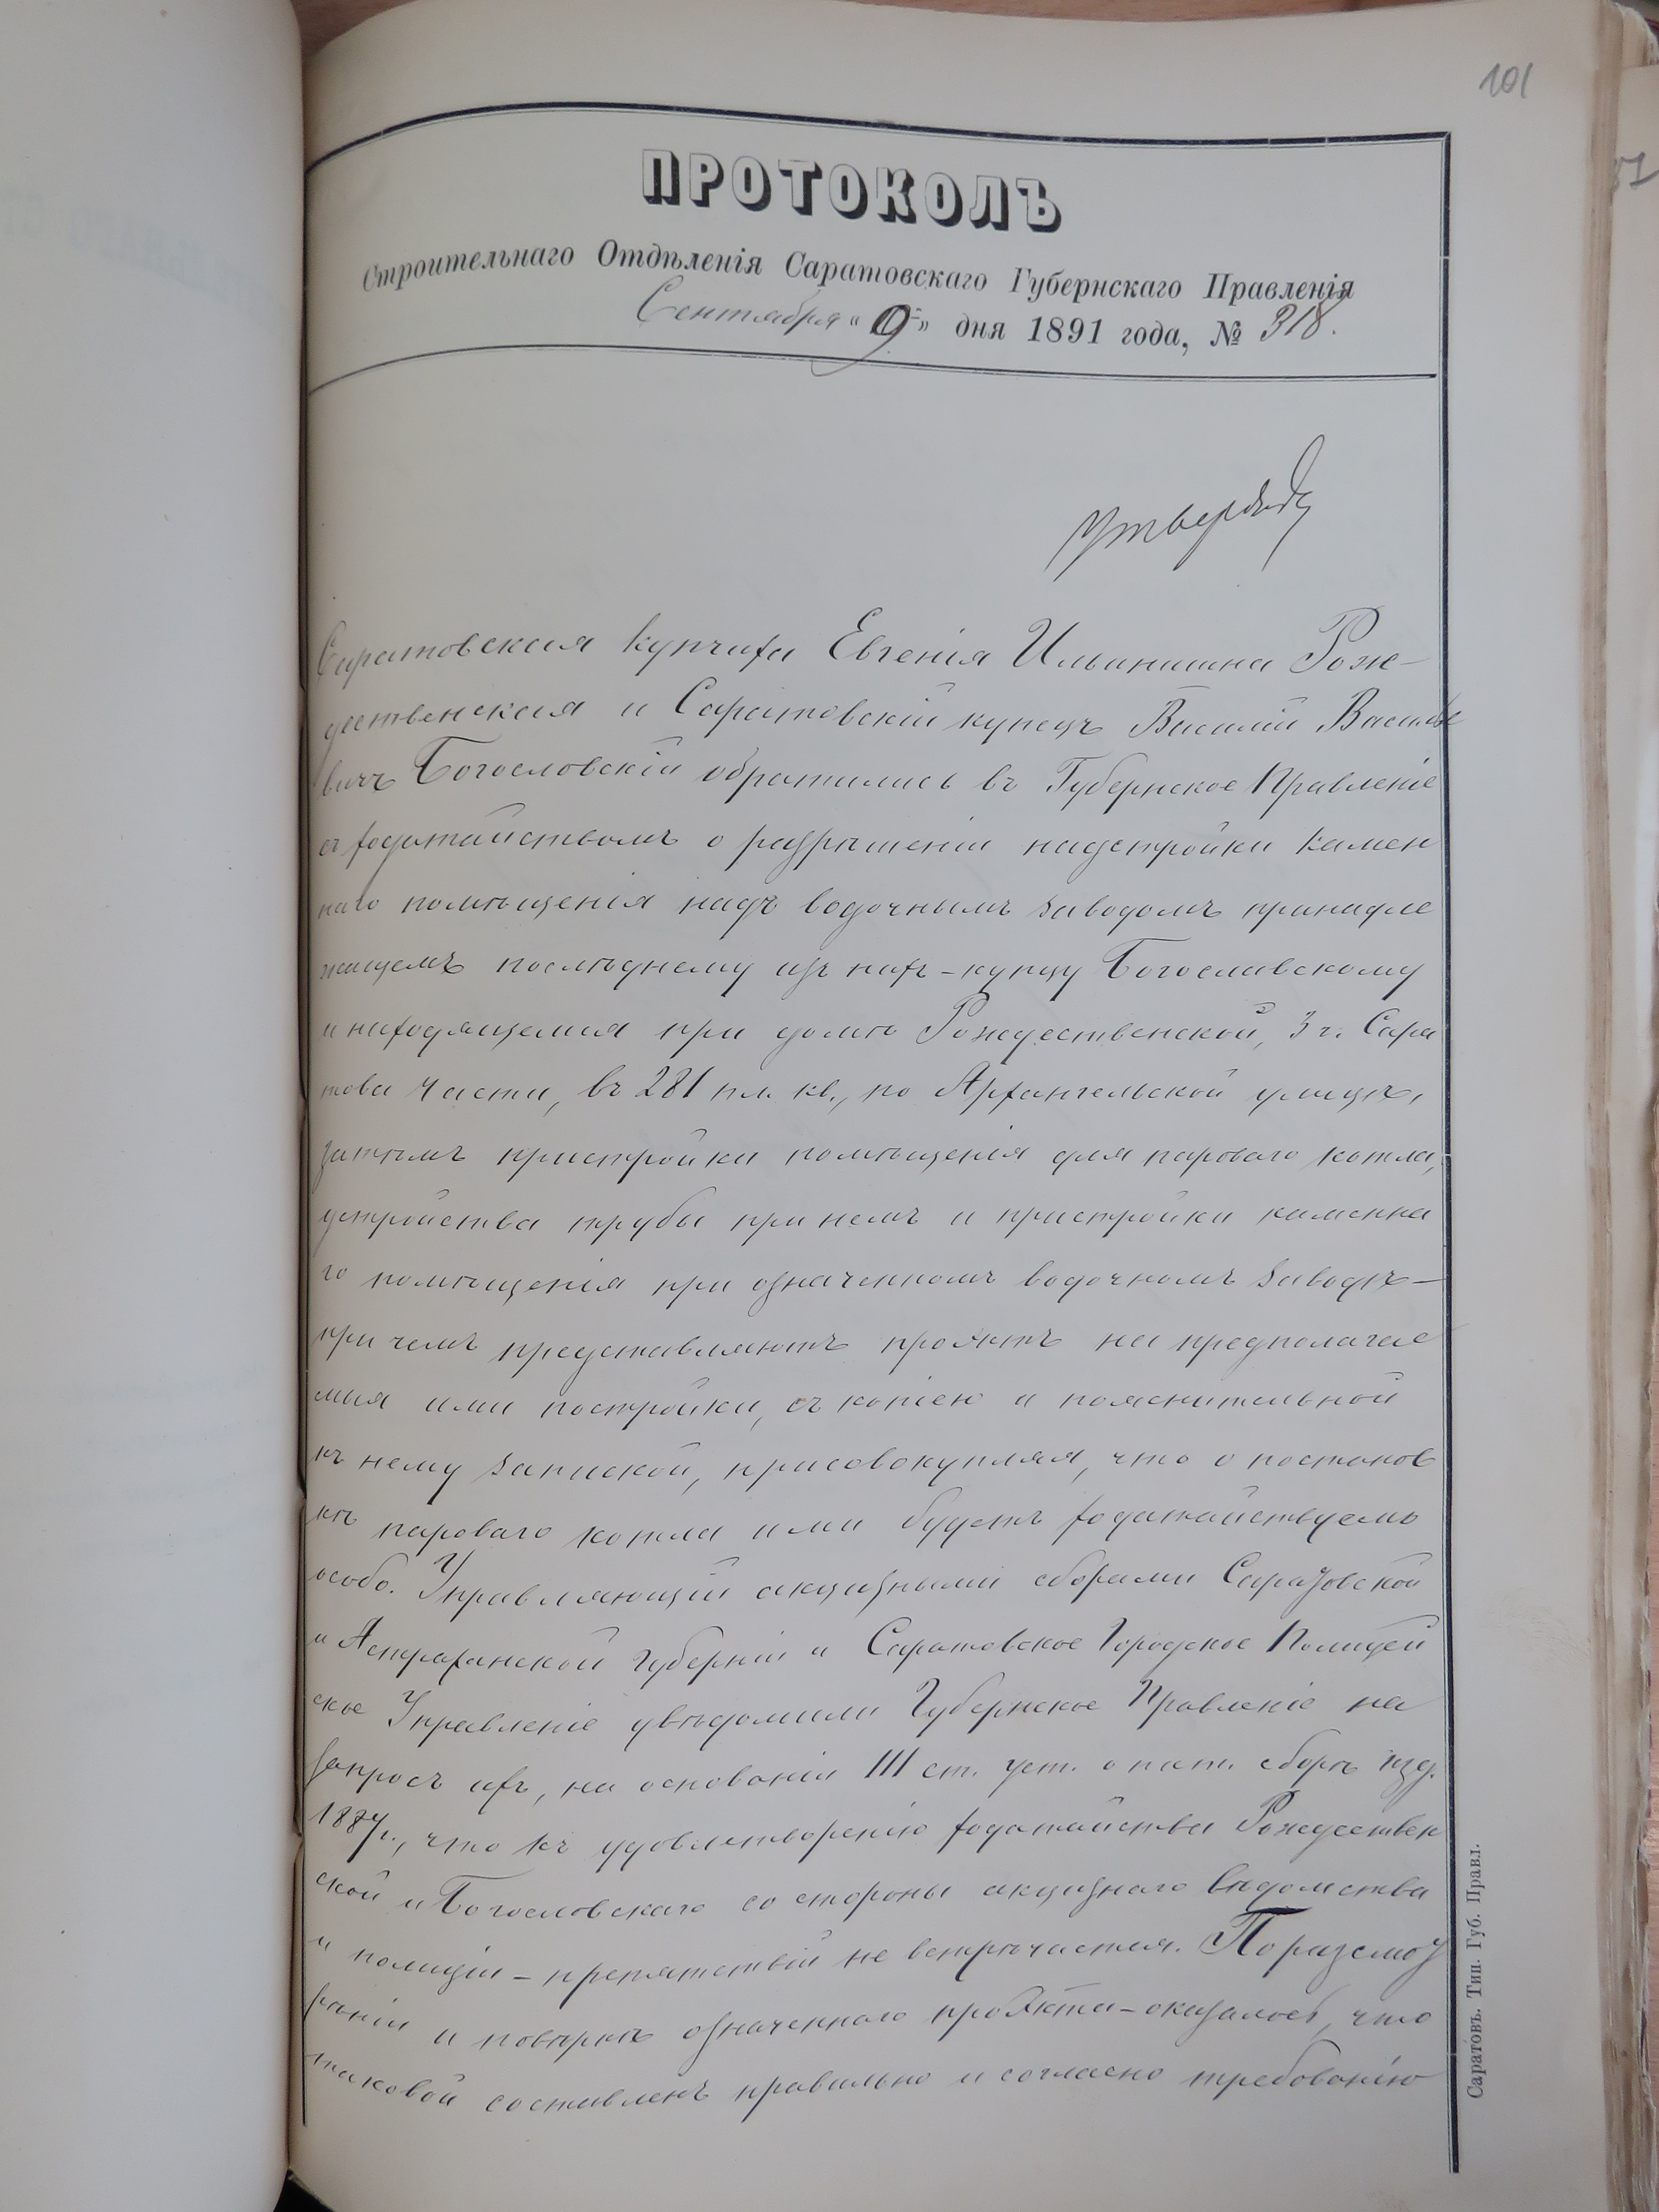 101
ПРОТОКОЛЪ
Строительнаго Отдѣленія Саратовскаго Губернскаго Правленія
Сентября „9“ дня 1891 года, № 318.
Утверждаю
Саратовская купчиха Евгенія Ильинишна Рож-
дественская и Саратовскій купецъ Василій Василье
вичъ Богословскій обратились въ Губернское Правленіе
съ ходатайствомъ о разрѣшеніи надстройки камен
наго помѣщенія надъ водочнымъ заводомъ принадле
жащемъ послѣднему изъ нихъ – купцу Богославскому
и находящемся при домѣ Рождественской, 3 г. Сара
това части, въ 281 пл. кв., по Архангельской улицѣ,
затѣмъ пристройки помѣщенія для пароваго котла,
устройства трубы при немъ и пристройки каменна
го помѣщенія при означенномъ водочномъ заводѣ –
при чемъ представляютъ проэктъ на предполагае
мыя ими постройки, съ копіею и пояснительной
къ нему запиской, присовокупляя, что о постанов
кѣ пароваго котла ими будетъ ходатайствуемо
особо. Управляющій акцизными сборами Саратовской
и Астраханской губерніи и Саратовское Городское Полицей
ское Управленіе увѣдомили Губернское Правленіе на
запросъ ихъ, на основаніи 111 ст. уст. о пит. сборѣ изд.
1887 г., что къ удовлетворенію ходатайства Рождествен
ской и Богословскаго со стороны акцизнаго вѣдомства
и полиціи – препятствій не встрѣчается. По разсмот
рѣніи и повѣркѣ означеннаго проэкта – оказалось, что
таковой составленъ правильно и согласно требованію
Саратовъ. Тип. Губ. Правл.